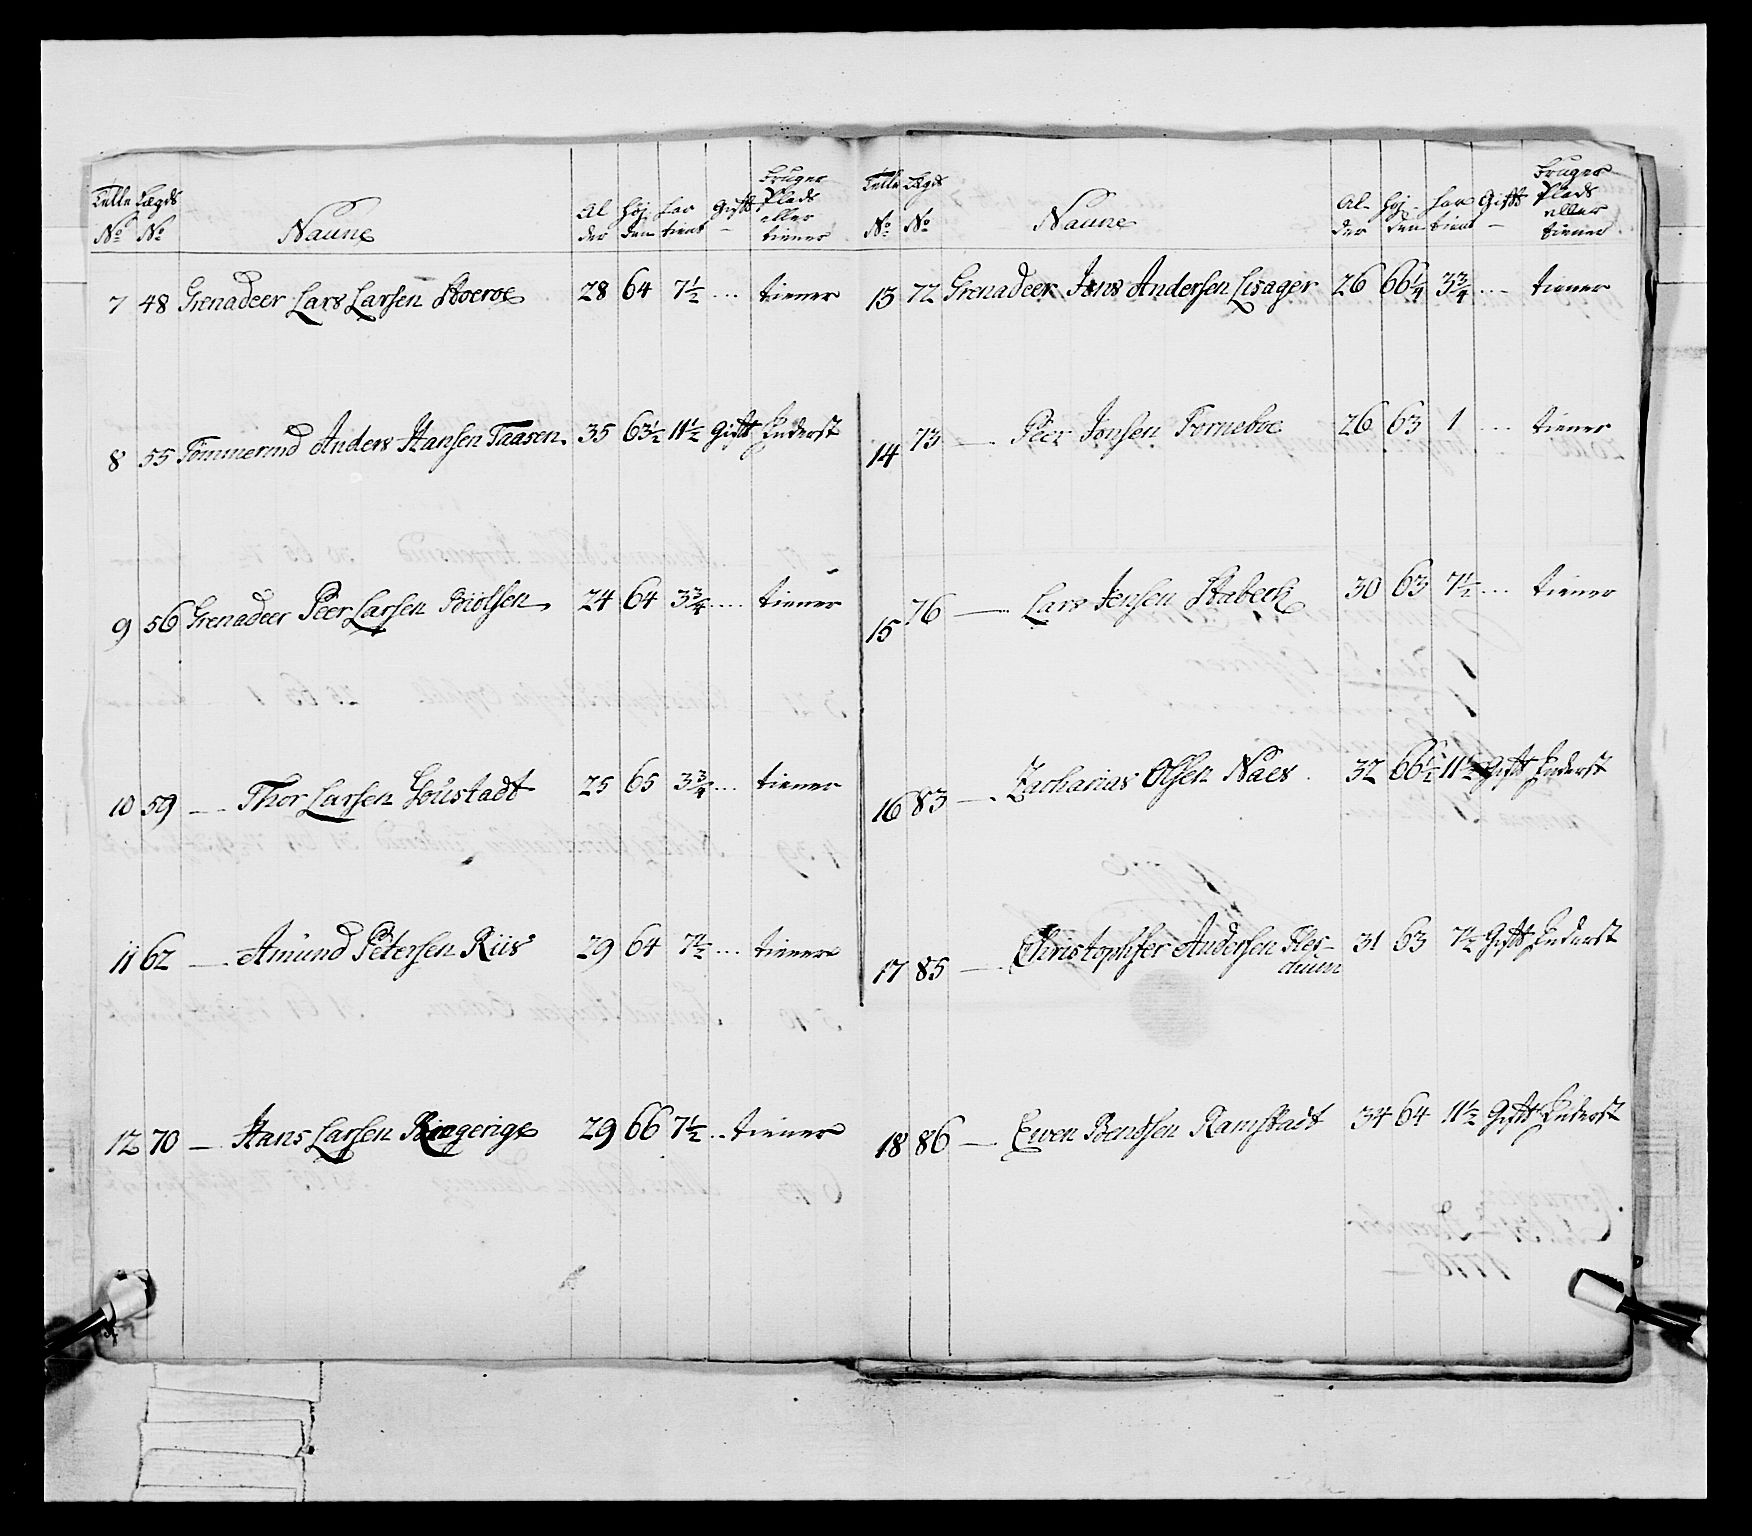 Tælle Lægds
No No Naune Al der Høj den har tient Gift Bruger Plads eller tiener
7 48 Grenadeer Lars Larsen Stoeroe 28 64 7½ ... tiener
8 55 Tømmermd Anders Hansen Taasen 35 63½ 11½ Gift Inderst
9 56 Grenadeer Peer Larsen Biølsen 24 64 3¾ .... tiener
10 59 — Thor Larsen Goustadt 25 65 3¾ ... tiener
11 62 — Amund Petersen Riis 29 64 7½ ... tiener
12 70 — Hans Larsen Ringerige 29 66 7½ .. tiener
Tælle Lægds
No No Naune Al- der Høj- den har tient Gift Bruger Plads eller tiener
13 72 Grenadeer Jens Andersen Lisager 26 66¼ 3¾ ... tiener
14 73 — Peer Jonsen Forneboe 26 63 1 ... tiener
15 76 — Lars Jensen Stabech 30 63 7½ ... tiener
16 83 — Zacharias Olsen Naes 32 66½ 11½ Gift Inderst
17 85 — Christophfer Andersen 31 63 7½ Gift Inderst
18 86 — Ewen Bendsen Ramstadt 34 64 11½ Gift Inderst